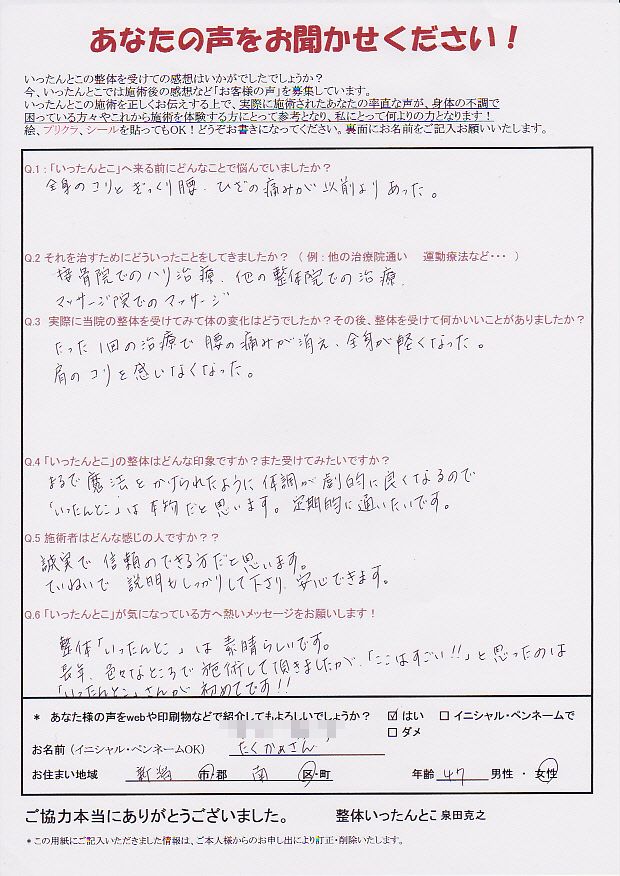 あなたの声をお聞かせください！
いったんとこの整体を受けての感想はいかがでしたでしょうか？
今、いったんとこでは施術後の感想など「お客様の声」を募集しています。
いったんとこの施術を正しくお伝えする上で、実際に施術されたあなたの率直な声が、身体の不調で
困っている方々やこれから施術を体験する方にとって参考となり、私にとって何よりの力となります！
絵、プリクラ、シールを貼ってもOK！どうぞお書きになってください。裏面にお名前をご記入お願いいたします。
Q.1：「いったんとこ」へ来る前にどんなことで悩んでいましたか？
全身のコリとぎっくり腰、ひざの痛みが以前よりあった。
Q.2 それを治すためにどういったことをしてきましたか？（例：他の治療院通い　運動療法など・・・）
接骨院でのハリ治療、他の整体院での治療、
マッサージ院でのマッサージ
Q.3 実際に当院の整体を受けてみて体の変化はどうでしたか？その後、整体を受けて何かいいことがありましたか？
たった1回の治療で腰の痛みが消え、全身が軽くなった。
肩のコリを感じなくなった。
Q.4「いったんとこ」の整体はどんな印象ですか？また受けてみたいですか？
まるで魔法をかけられたように体調が劇的に良くなるので
「いったんとこ」は本物だと思います。定期的に通いたいです。
Q.5 施術者はどんな感じの人ですか？？
誠実で信頼のできる方だと思います。
ていねいで説明もしっかりして下さり、安心できます。
Q.6「いったんとこ」が気になっている方へ熱いメッセージをお願いします！
整体「いったんとこ」は素晴らしいです。
長年、色々なところで施術して頂きましたが、「ここはすごい!!」と思ったのは
「いったんとこ」さんが初めてです!!
* あなた様の声をwebや印刷物などで紹介してもよろしいでしょうか？ ☑はい □イニシャル・ペンネームで
□ダメ
お名前（イニシャル・ペンネームOK） たくかぁさん
お住まい地域 新潟 市・郡 南 区・町 年齢 47 男性・女性
ご協力本当にありがとうございました。 整体いったんとこ 泉田克之
*この用紙にご記入いただきました情報は、ご本人様からのお申し出により訂正・削除いたします。